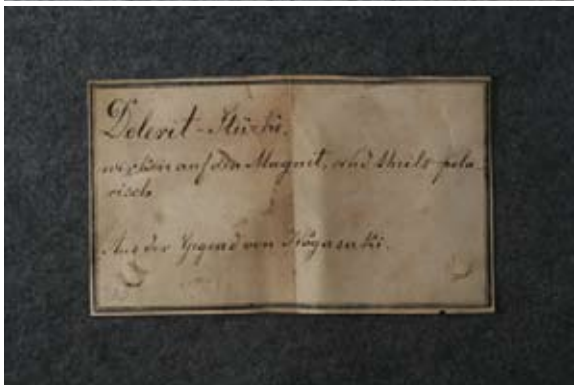 Dolerit-Stücke,
wirken auf den Magnet, sind theils pola-
risch.
Aus der Gegend von Nögasaki.